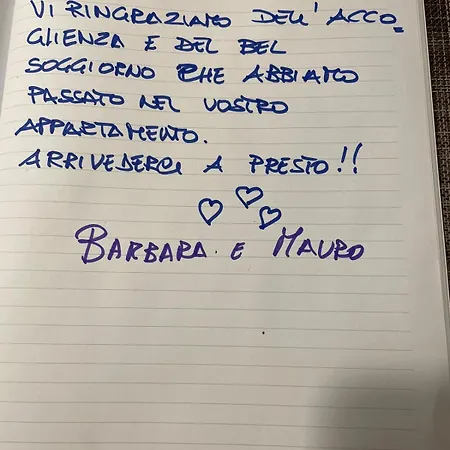 VI RINGRAZIAMO DELL'ACCO_
GLIENZA E DEL BEL
SOGGIORNO CHE ABBIAMO
PASSATO NEL VOSTRO
APPARTAMENTO.
ARRIVEDERCI A PRESTO!!
BARBARA E MAURO